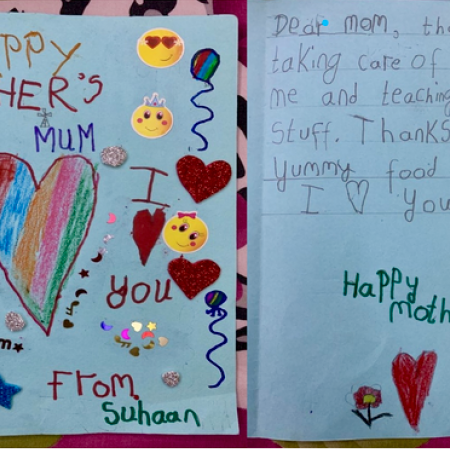 PPY
HER'S
MUM
I
you
From
Suhaan
Dear mom, tha
taking care of
me and teaching
stuff. Thanks
yummy food
I you
Happy
Moth